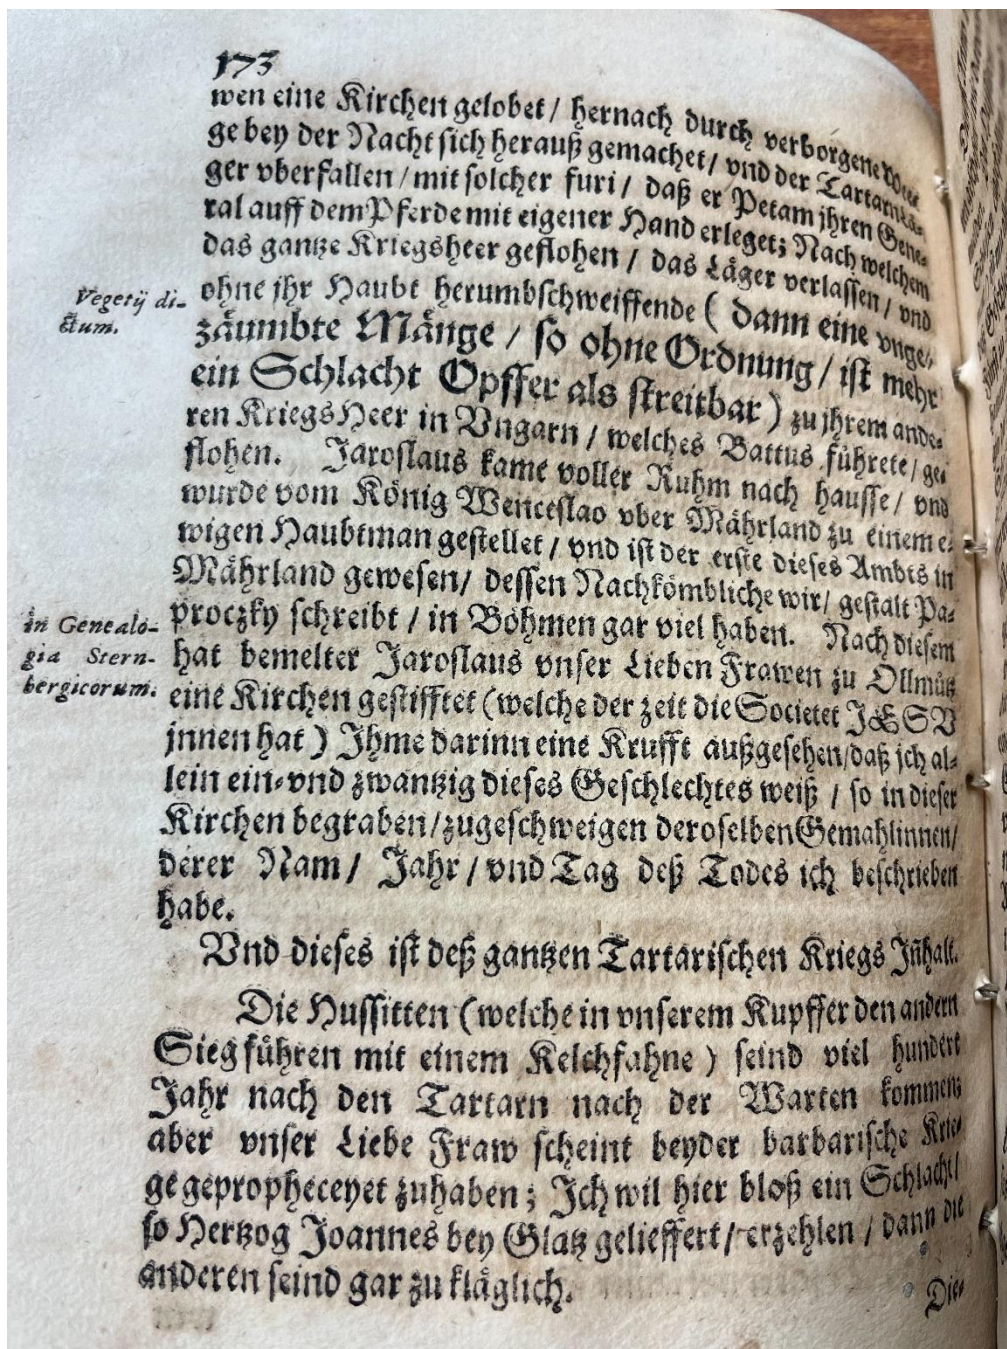 173
wen eine Kirchen gelobet / hernach durch verborgene We-
ge bey der Nacht sich herauß gemachet / vnd der Tartarn Lä-
ger vberfallen / mit solcher furi / daß er Petam jhren Gene-
ral auff dem Pferde mit eigener Hand erleget; Nach welchem
das gantze Kriegsheer geflohen / das Läger verlassen / vnd
ohne jhr Haubt herumbschweiffende ( dann eine vnge-
Vegetij di-
ctum.
zäumbte Mänge / so ohne Ordnung / ist mehr
ein Schlacht Opffer als streitbar ) zu jhrem ande-
ren KriegsHeer in Vngarn / welches Battus führete / ge-
flohen. Jaroslaus kame voller Ruhm nach hausse / vnd
wurde vom König Wenceslao vber Mährland zu einem e-
wigen Haubtman gestellet / vnd ist der erste dieses Ambts in
Mährland gewesen / dessen Nachkömbliche wir / gestalt Pa-
proczky schreibt / in Böhmen gar viel haben. Nach diesem
in Genealo-
gia Stern-
bergicorum.
hat bemelter Jaroslaus vnser Lieben Frawen zu Ollmütz
eine Kirchen gestifftet ( welche der zeit die Societet JESV
jnnen hat ) Jhme darinn eine Krufft außgesehen / daß jch al-
lein ein-vnd zwantzig dieses Geschlechtes weiß / so in dieser
Kirchen begraben / zugeschweigen deroselben Gemahlinnen /
derer Nam / Jahr / vnd Tag deß Todes ich beschrieben
habe.
Vnd dieses ist deß gantzen Tartarischen Kriegs Jñhalt.
Die Hussitten ( welche in vnserem Kupffer den andern
Sieg führen mit einem Kelchfahne ) seind viel hundert
Jahr nach den Tartarn nach der Warten kommen;
aber vnser Liebe Fraw scheint beyder barbarische Krie-
ge gepropheceyet zuhaben; Jch wil hier bloß ein Schlacht /
so Hertzog Joannes bey Glatz gelieffert / erzehlen / dann die
anderen seind gar zu kläglich.
Die-